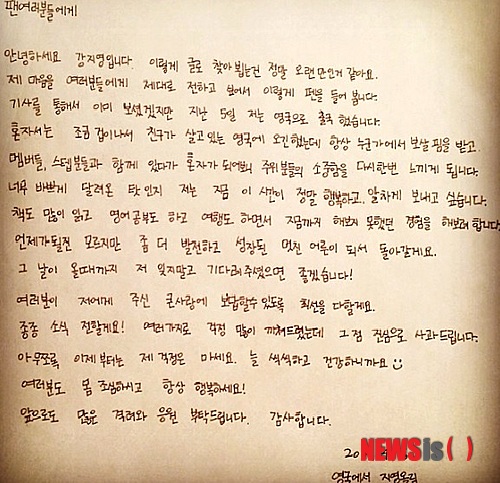 팬여러분들에게
안녕하세요 강지영입니다. 이렇게 글로 찾아 뵙는건 정말 오랜만인거 같아요.
제 마음을 여러분들에게 제대로 전하고 싶어서 이렇게 펜을 들어 봅니다.
기사를 통해서 이미 보셨겠지만 지난 5일 저는 영국으로 출국 했습니다.
혼자서는 조금 겁이나서 친구가 살고있는 영국에 오긴했는데 항상 누군가에서 보살핌을 받고,
멤버들, 스텝분들과 함께 있다가 혼자가 되어보니 주위 분들의 소중함을 다시한번 느끼게 됩니다.
너무 바쁘게 달려온 탓인지 저는 지금 이 시간이 정말 행복하고, 알차게 보내고 싶습니다.
책도 많이 읽고 영어공부도 하고 여행도 하면서 지금까지 해보지 못했던 경험을 해보려 합니다.
언제가될진 모르지만 좀 더 발전하고 성장된 멋진 어른이 되서 돌아갈게요.
그 날이 올때까지 저 잊지말고 기다려주셨으면 좋겠습니다!
여러분이 저에게 주신 큰사랑에 보답할수있도록 최선을 다할게요.
종종 소식 전할게요! 여러가지로 걱정 많이 끼쳐드렸는데 그 점 진심으로 사과드립니다.
아무쪼록 이제부터는 제 걱정은 마세요. 늘 씩씩하고 건강하니까요
여러분도 몸 조심하시고 항상 행복하세요!
앞으로도 많은 격려와 응원 부탁드립니다. 감사합니다.
20
NEWSis( )
영국에서 지영올림